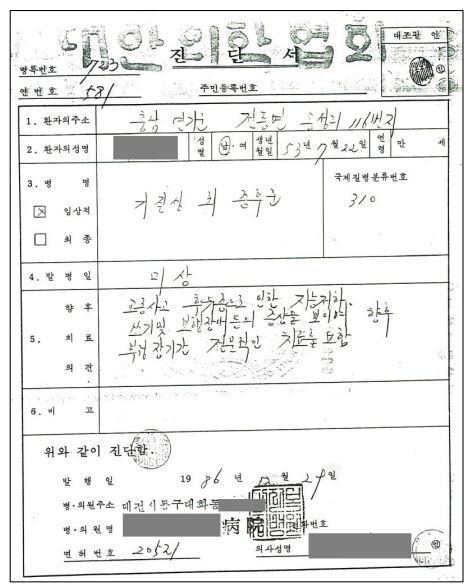 대한의학협회
진 단 서
대조필 인
병록번호 723
연 번 호 581 주민등록번호
1. 환자의주소 충남 연기군 전동면 송성리 116번지
2. 환자의성명 성별 남·여 생년월일 53년 7월 22일 연령 만 세
3. 병 명 국제질병분류번호
임상적 기질성 뇌 증후군 310
최 종
4. 발 병 일 미상
향 후 교통사고 후유증으로 인한 지능저하,
5. 치 료 쓰기및 보행장애 등의 증상을 보이며 향후
의 견 장기간 전문적인 치료를 요함
6. 비 고
위와 같이 진단함.
발 행 일 1986 년 12 월 29 일
병·의원주소 대전시동구대화동
병·의원명 病院 전화번호
면 허 번 호 20521 의사성명 인